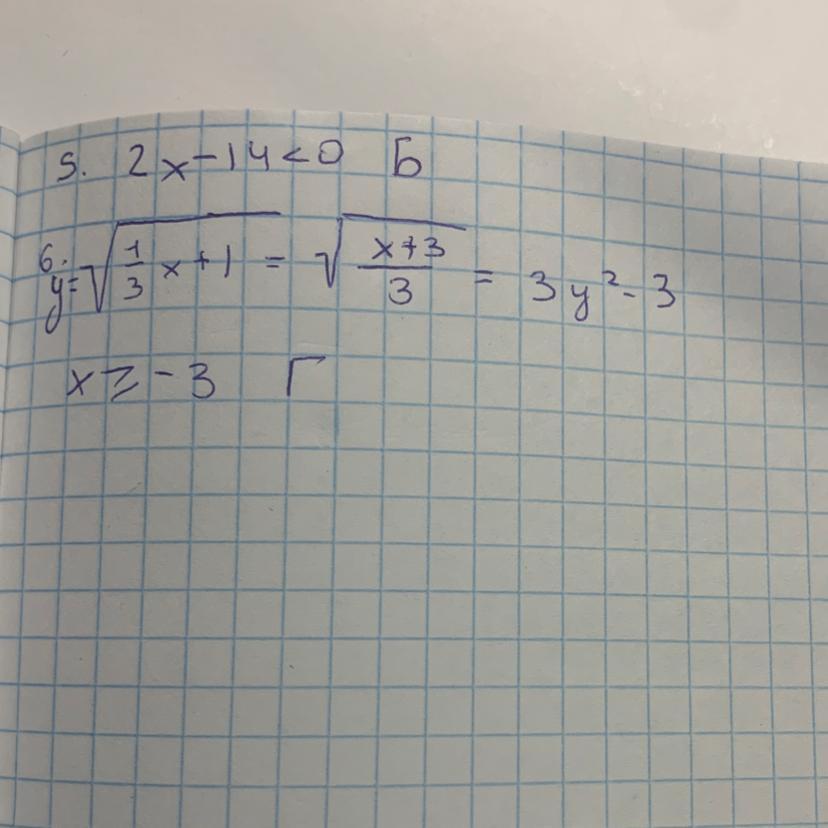 5. 2x-14<0 Б
6. y=√(1/3 x+1) = √((x+3)/3) = 3y²-3
x≥-3 Г